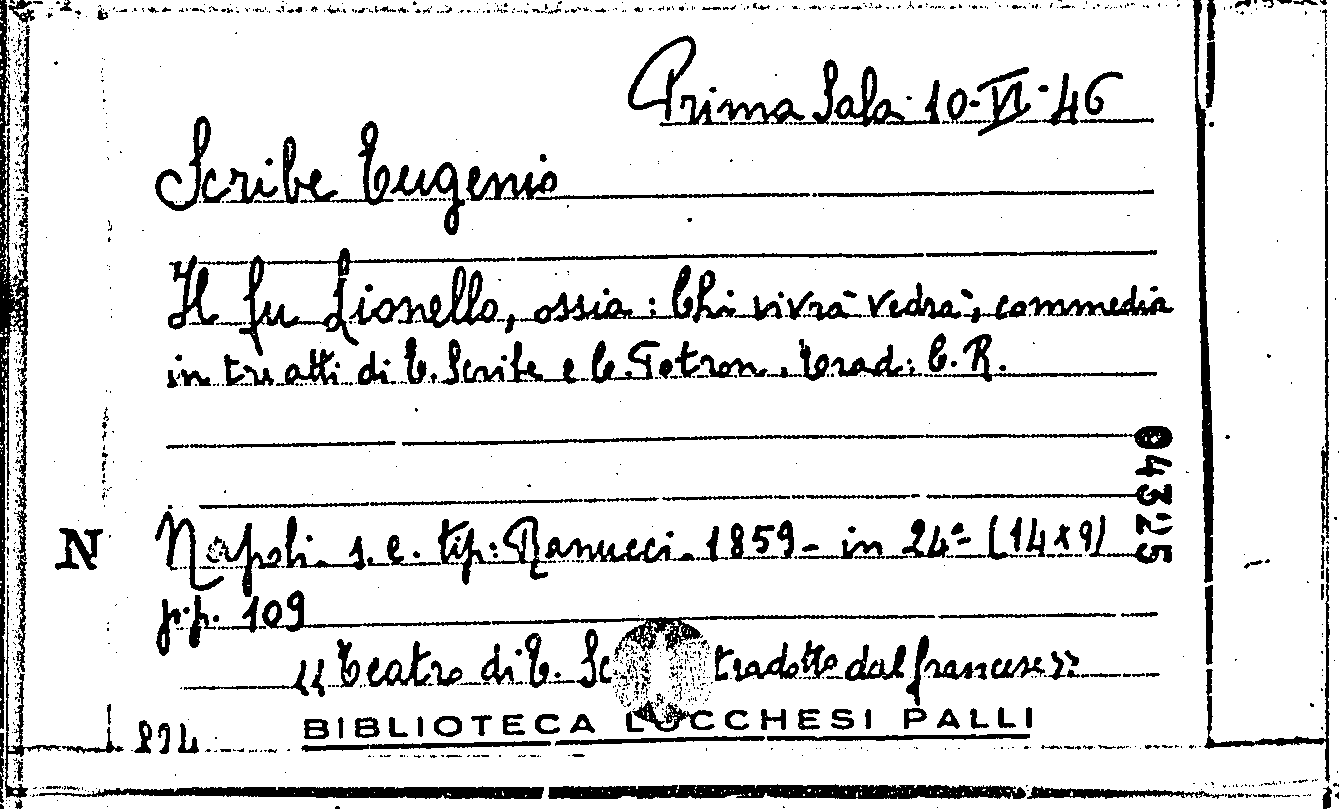 Prima Sala. 10-VI-46
Scribe Eugenio
Il fu Lionello, ossia: Chi vivrà vedrà, commedia
in tre atti di E. Scribe e C. Potron. Trad: C. R.
04325
N Napoli. s. e. tip: Ranucci. 1859- in 24° (14x9)
p.p. 109
"Teatro di E. Sc tradotto dal francese"
BIBLIOTECA LUCCHESI PALLI